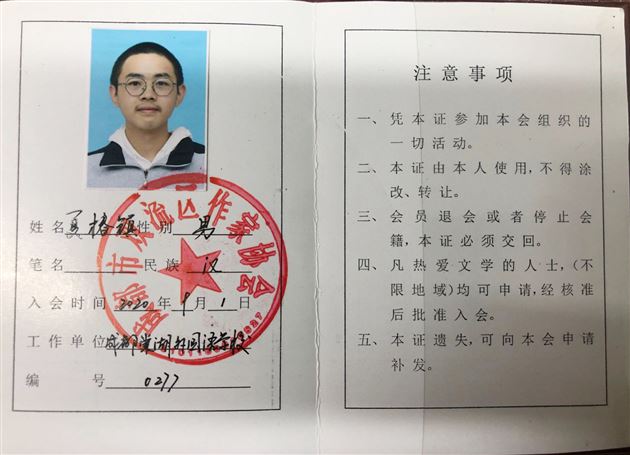 姓名 夏椿镇 性别 男
笔名 民族 汉
入会时间 2020年9月1日
工作单位 成都棠湖外国语学校
编号 0277
成都市双流区作家协会
注意事项
一、凭本证参加本会组织的
一切活动。
二、本证由本人使用,不得涂
改、转让。
三、会员退会或者停止会
籍,本证必须交回。
四、凡热爱文学的人士,(不
限地域)均可申请,经核准
后批准入会。
五、本证遗失,可向本会申请
补发。